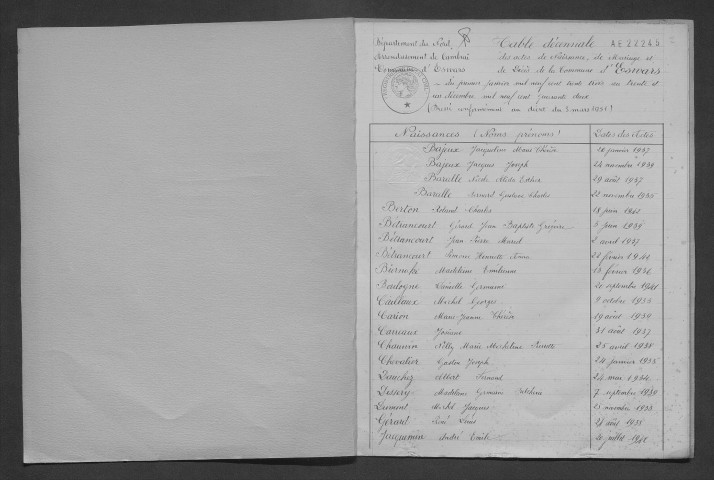 Département du Nord
Arrondissement de Cambrai
Commune d'Eswars
Table décennale AE22245
des actes de Naissance, de Mariage et
de Décès de la Commune d'Eswars
du premier janvier mil neuf cent trente trois au trente et
un décembre mil neuf cent quarante deux
conformément au décret du 3 mars 1951)
Naissances (Noms prénoms) Dates des Actes
Bajeux Jacqueline Marie Thérèse 20 janvier 1937
Bajeux Jacques Joseph 24 novembre 1939
Baralle 29 août 1937
Baralle Bernard Gustave Charles 22 novembre 1935
Berton Roland Charles 18 juin 1942
Bétrancourt Gérard Jean Baptiste 5 juin 1935
Bétrancourt Jean Pierre Marcel 2 avril 1937
Bétrancourt Simone Henriette 22 février 1941
Madeleine Emilienne 13 février 1936
Boulogne Camille Germaine 20 septembre 1941
Caillaux Michel Georges 9 octobre 1933
Carion Marie Jeanne Thérèse 19 août 1939
Carreaux Josiane 31 août 1937
Chauvin Nelly Marie Madeleine 25 avril 1938
Chevalier Gaston Joseph 24 janvier 1935
Dauchez Albert Fernand 24 mai 1934
Madeleine Germaine 7 septembre 1939
Dumont Michel Jacques 23 novembre 1933
Gérard René Louis 24 août 1938
Jacquemin André Emile 20 juillet 1940